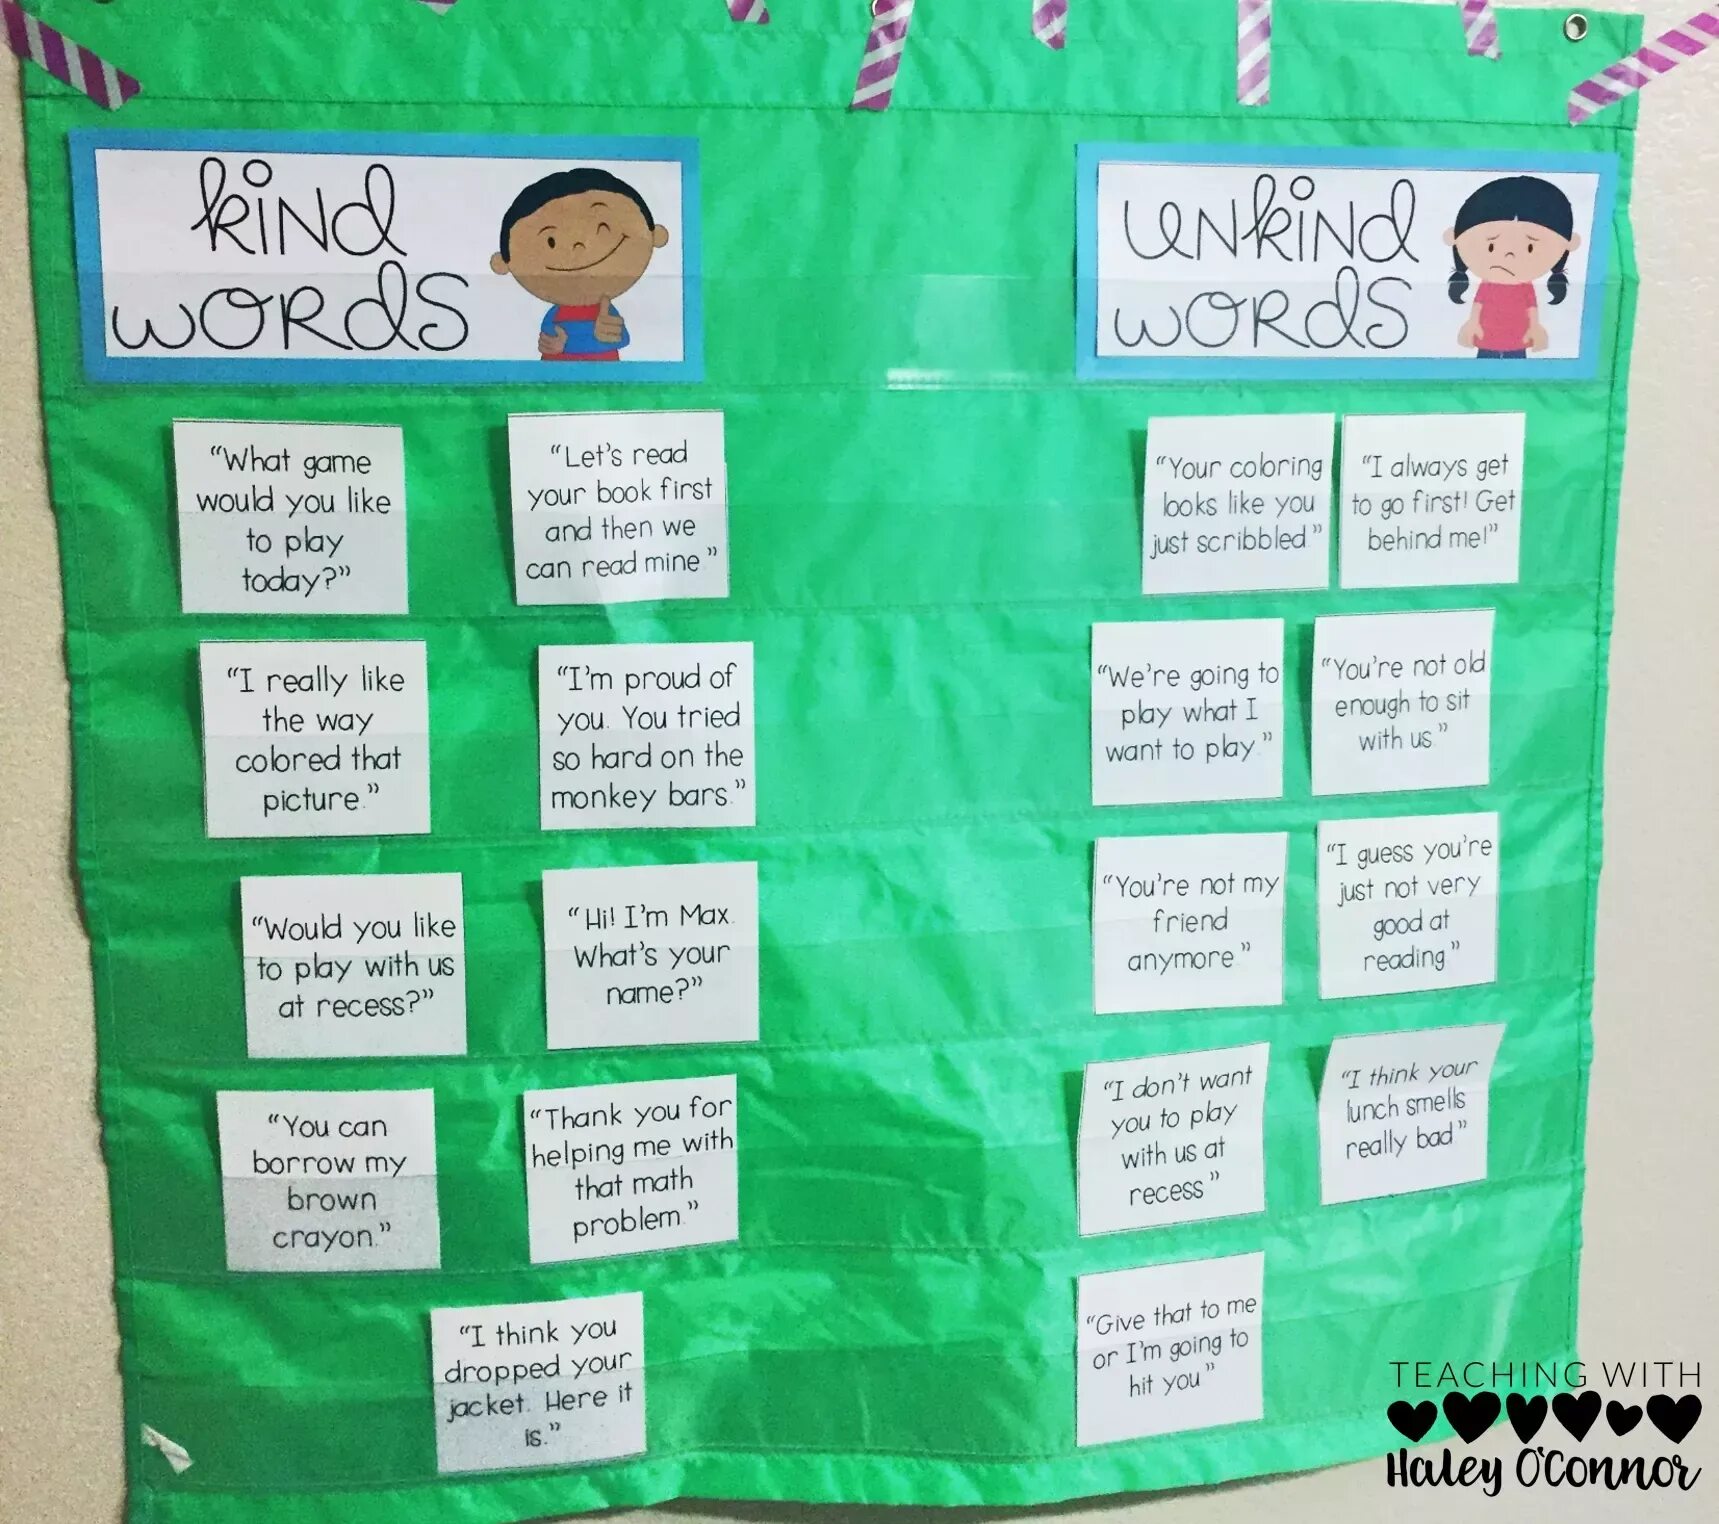 kind
words
"What game
would you like
to play
today?"
"Let's read
your book first
and then we
can read mine."
"I really like
the way
colored that
picture."
"I'm proud of
you. You tried
so hard on the
monkey bars."
"Would you like
to play with us
at recess?"
"Hi! I'm Max.
What's your
name?"
"You can
borrow my
brown
crayon."
"Thank you for
helping me with
that math
problem."
"I think you
dropped your
jacket. Here it
is."
unkind
words
"Your coloring
looks like you
just scribbled."
"I always get
to go first! Get
behind me!"
"We're going to
play what I
want to play."
"You're not old
enough to sit
with us."
"You're not my
friend
anymore."
"I guess you're
just not very
good at
reading."
"I don't want
you to play
with us at
recess."
"I think your
lunch smells
really bad."
"Give that to me
or I'm going to
hit you."
TEACHING WITH
Haley O'Connor